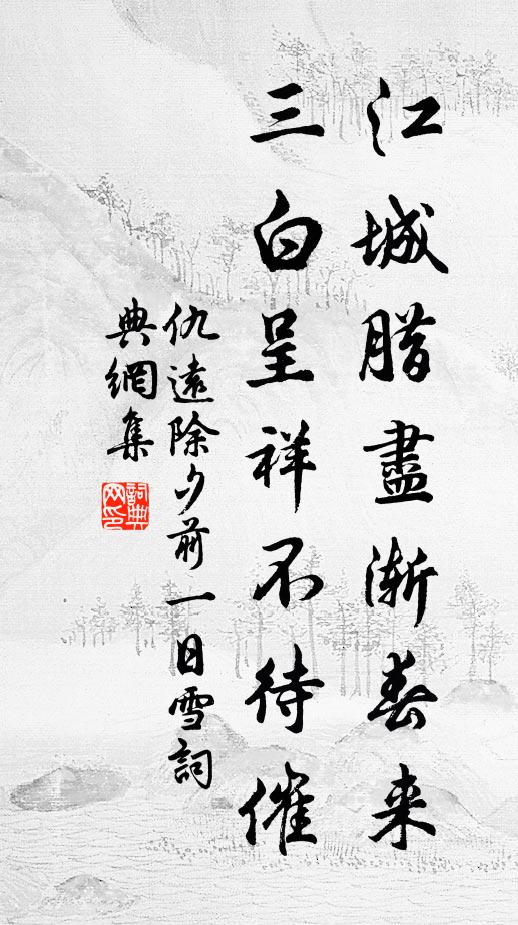 江城腊盡漸春来
三白呈祥不待催
仇遠除夕前一日雪詞
典網集
詞典
网印